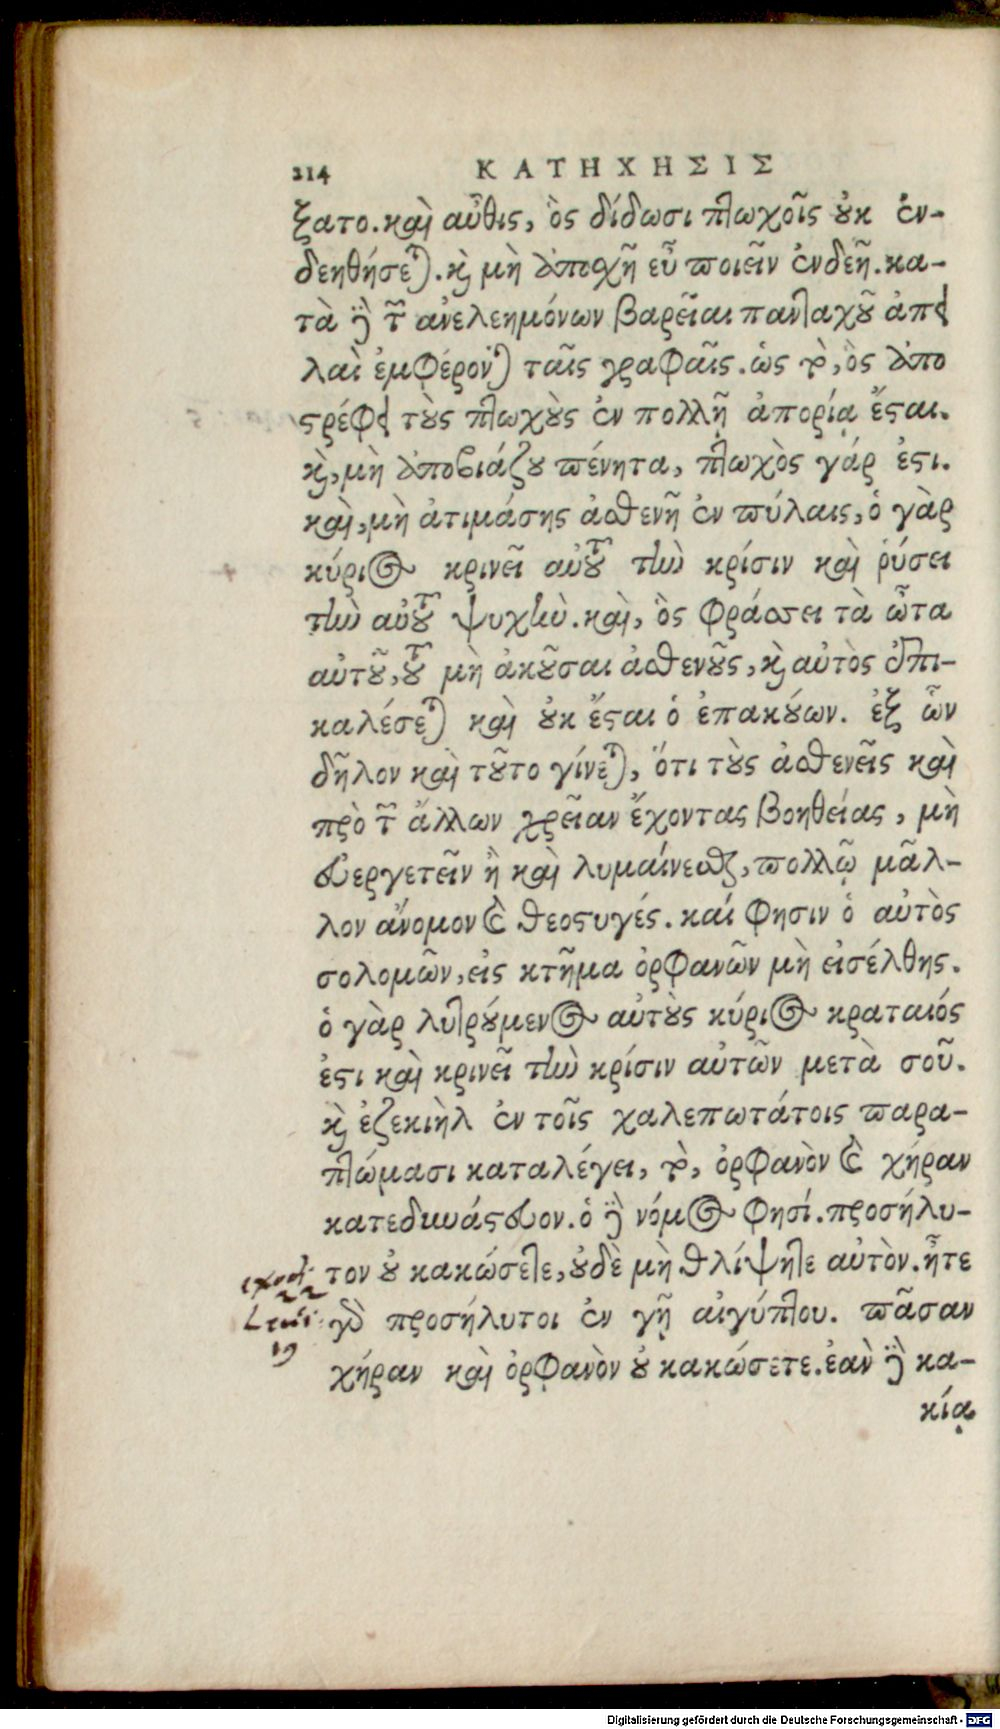 214 ΚΑΤΗΧΗΣΙΣ
ξατο. καὶ αὖθις, ὃς δίδωσι πτωχοῖς οὐκ ἐν-
δεηθήσεται. καὶ μὴ ἀποσχῇ εὖ ποιεῖν ἐνδεῆ. κα-
τὰ δὲ τῶν ἀνελεημόνων βαρεῖαι πανταχοῦ ἀπει
λαὶ ἐμφέρονται ταῖς γραφαῖς. ὡς τὸ, ὃς ἀπο
στρέφει τοὺς πτωχοὺς ἐν πολλῇ ἀπορίᾳ ἔσται.
καὶ, μὴ ἀποβιάζου πένητα, πτωχὸς γάρ ἐστι.
καὶ, μὴ ἀτιμάσῃς ἀσθενῆ ἐν πύλαις, ὁ γὰρ
κύριος κρινεῖ αὐτοῦ τὴν κρίσιν καὶ ῥύσει
τὴν αὐτοῦ ψυχήν. καὶ, ὃς φράσσει τὰ ὦτα
αὐτοῦ, τοῦ μὴ ἀκοῦσαι ἀσθενοῦς, καὶ αὐτὸς ἐπι-
καλέσεται καὶ οὐκ ἔσται ὁ ἐπακούων. ἐξ ὧν
δῆλον καὶ τοῦτο γίνεται, ὅτι τοὺς ἀσθενεῖς καὶ
πρὸ τῶν ἄλλων χρείαν ἔχοντας βοηθείας, μὴ
εὐεργετεῖν ἢ καὶ λυμαίνεσθαι, πολλῷ μᾶλ-
λον ἄνομον καὶ θεοστυγές. καί φησιν ὁ αὐτὸς
σολομῶν, εἰς κτῆμα ὀρφανῶν μὴ εἰσέλθῃς.
ὁ γὰρ λυτρούμενος αὐτοὺς κύριος κραταιός
ἐστι καὶ κρινεῖ τὴν κρίσιν αὐτῶν μετὰ σοῦ.
καὶ ἐζεκιὴλ ἐν τοῖς χαλεπωτάτοις παρα-
πτώμασι καταλέγει, τὸ, ὀρφανὸν καὶ χήραν
κατεδυνάστευον. ὁ δὲ νόμος φησί. προσήλυ-
τον οὐ κακώσετε, οὐδὲ μὴ θλίψητε αὐτὸν. ἦτε
γὰρ προσήλυτοι ἐν γῇ αἰγύπτου. πᾶσαν
χήραν καὶ ὀρφανὸν οὐ κακώσετε. ἐὰν δὲ κα-
κίᾳ
exod.
22
Leuit.
19
Digitalisierung gefördert durch die Deutsche Forschungsgemeinschaft - DFG